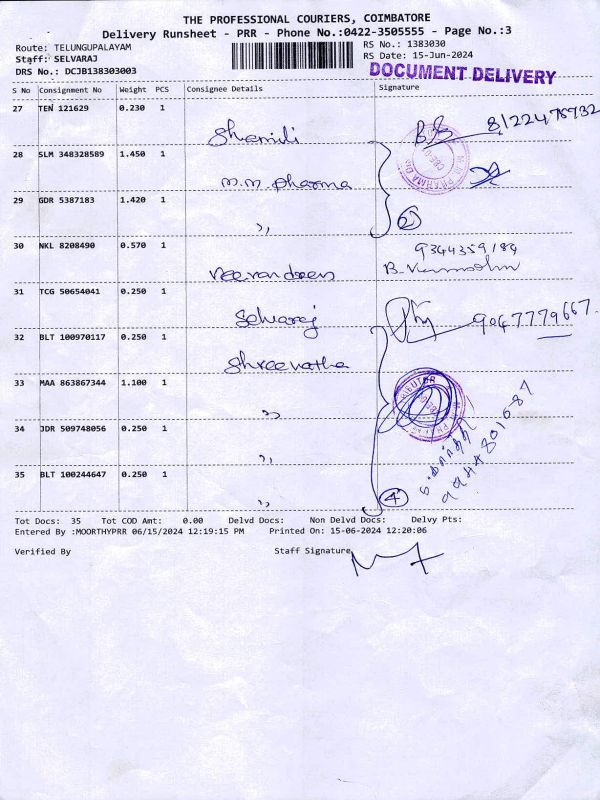 THE PROFESSIONAL COURIERS, COIMBATORE
Delivery Runsheet - PRR - Phone No.:0422-3505555 - Page No.:3
Route: TELUNGUPALAYAM
RS No.: 1383030
Staff: SELVARAJ
RS Date: 15-Jun-2024
DRS No.: DCJB138303003
DOCUMENT DELIVERY
S No Consignment No Weight PCS Consignee Details Signature
27 TEN 121629 0.230 1
Shamili 8122478932
28 SLM 348328589 1.450 1
M.M. Pharma
29 GDR 5387183 1.420 1
,, 2
30 NKL 8208490 0.570 1
9344359184
31 TCG 50654041 0.250 1
Selvaraj 9047779667
32 BLT 100970117 0.250 1
33 MAA 863867344 1.100 1
,,
34 JDR 509748056 0.250 1
,, 9944801687
35 BLT 100244647 0.250 1
,, 4
Tot Docs: 35 Tot COD Amt: 0.00 Delvd Docs: Non Delvd Docs: Delvy Pts:
Entered By :MOORTHYPRR 06/15/2024 12:19:15 PM Printed On: 15-06-2024 12:20:06
Verified By Staff Signature